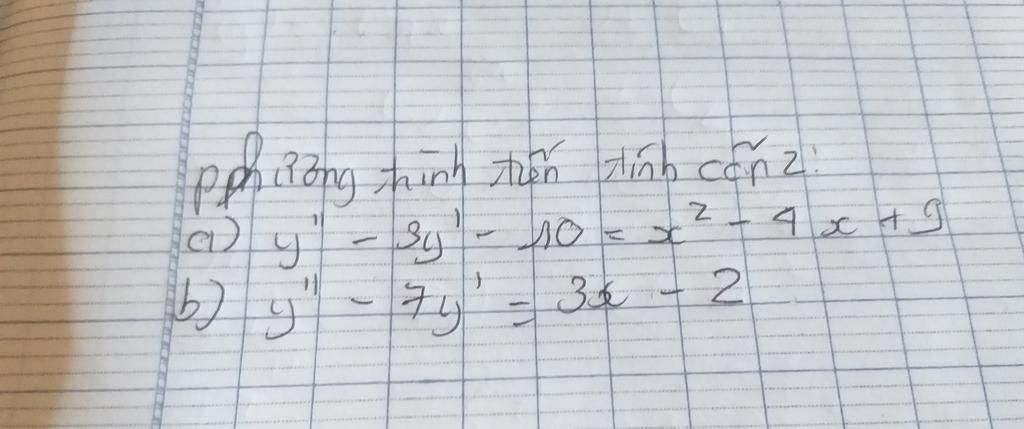 phương trình tuyến tính cấp 2:
a) y" - 3y' - 10 = x² - 4x + 9
b) y" - 7y' = 3x - 2